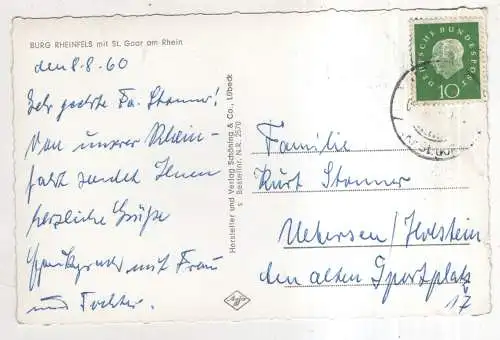 BURG RHEINFELS mit St. Goar am Rhein
den 8.8.60
Sehr geehrte Fa. Stomer!
Von unserer Rhein-
fahrt sendet Ihnen
herzliche Grüße
mit Frau
und Tochter.
Hersteller und Verlag Schöning & Co., Lübeck
s Bestellnr. N.R. 2570
agfa
DEUTSCHE BUNDESPOST
10
Familie
Kurt Stomer
Uetersen/Holstein
den alten Sportplatz
17